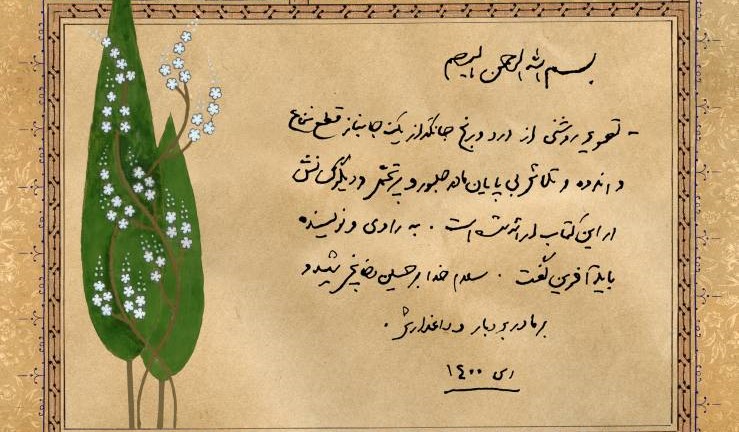 بسم الله الرحمن الرحیم
- تصویر روشنی از درد و رنج جانگداز یک جانباز قطع نخاع
و اندوه و تلاش بی پایان مادر صبور و پرتحمل و دیگر کسانش
در این کتاب ارائه شده است. به راوی و نویسنده
باید آفرین گفت. سلام خدا بر حسین شهید و
بر مادر بردبار و داغدارش.
دی ۱۴۰۰